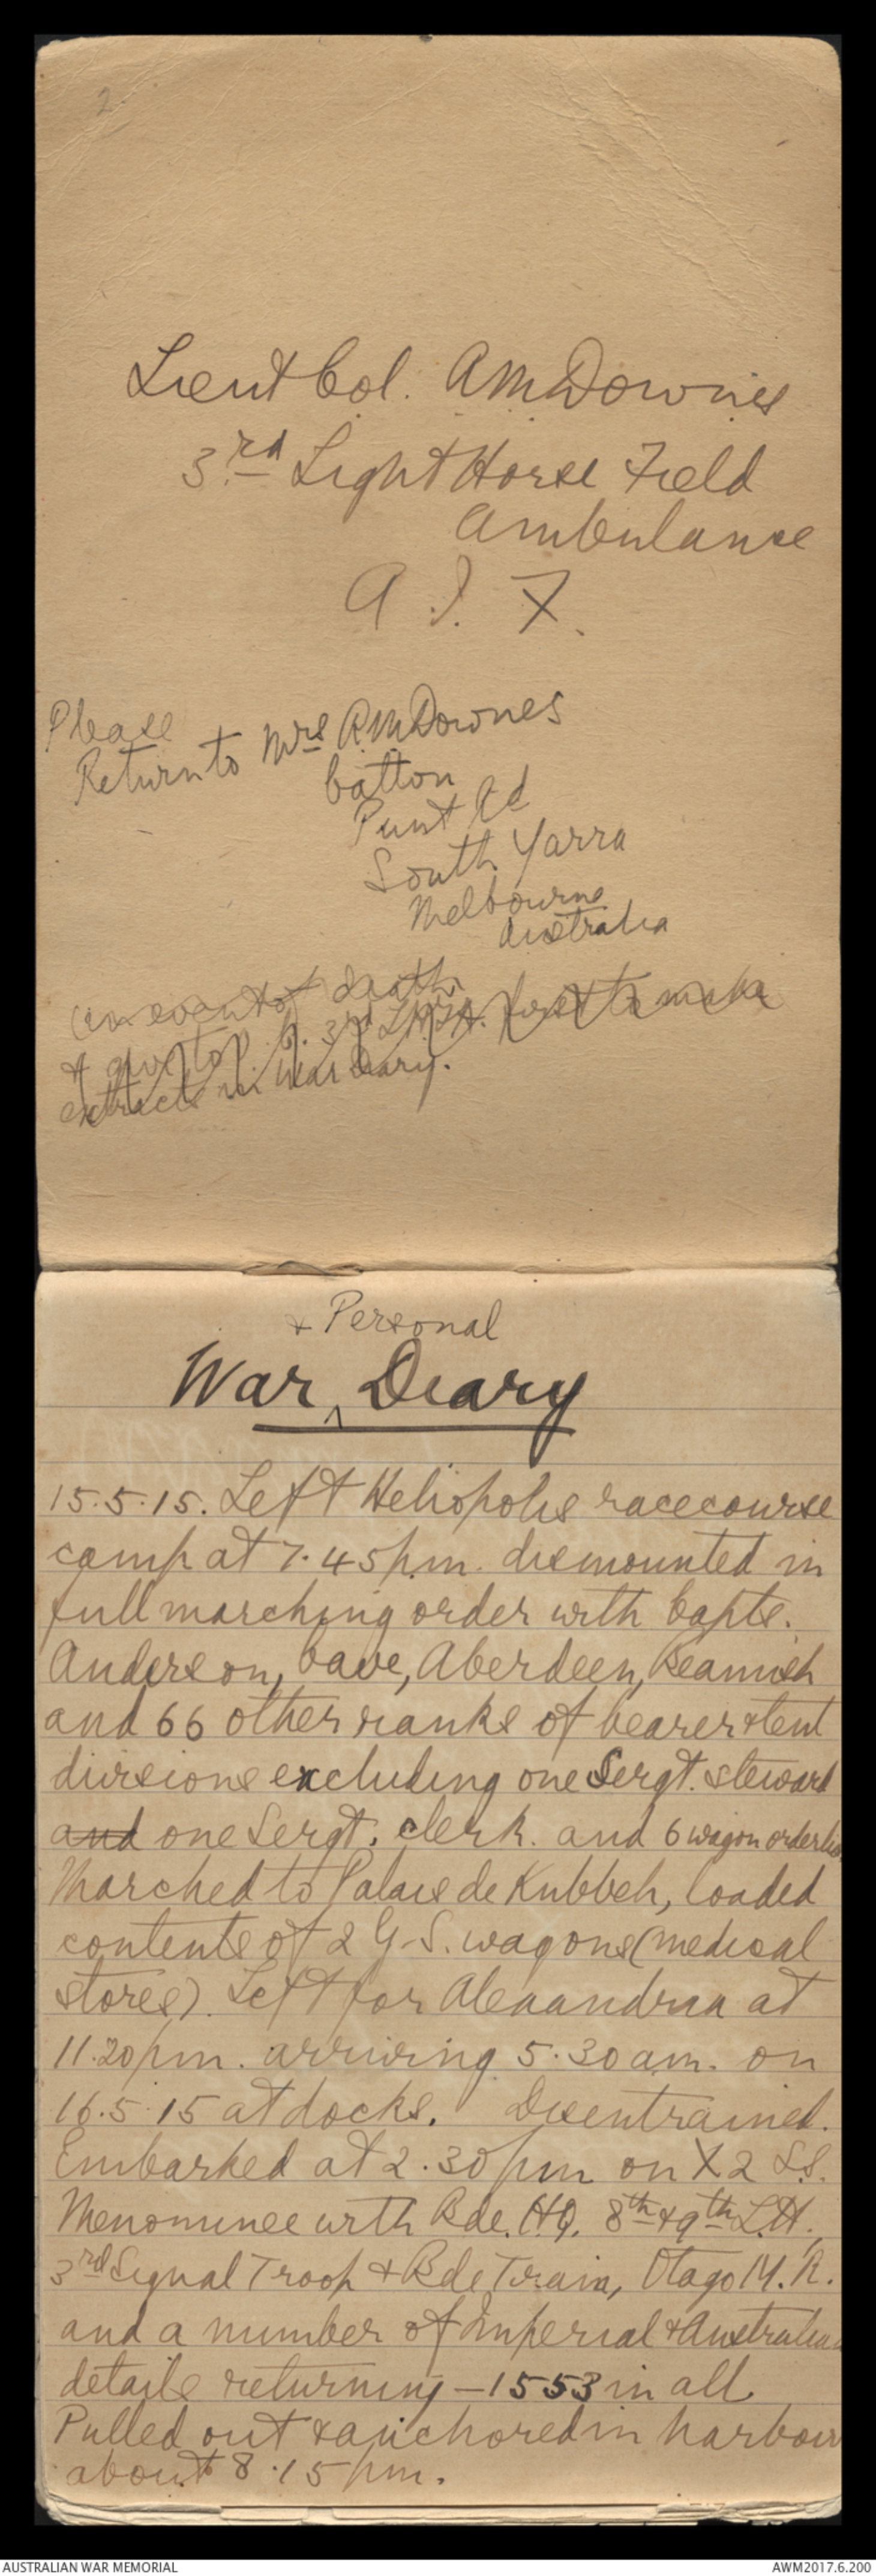 2.
Lieut Col. R M Downes
3rd Light Horse Field
Ambulance
A. I. F.
Please
Return to Mrs R M Downes
Catton
Punt Rd
South Yarra
Melbourne
Australia
(in event of death
& give to O.C. 3rd L.H.F.A. first to make
extracts in War Diary.
+ Personal
War ^ Diary
15.5.15. Left Heliopolis racecourse
camp at 7.45pm. dismounted in
full marching order with Capts.
Anderson, Cave, Aberdeen, Beamish
and 66 other ranks of bearer & tent
divisions excluding one Sergt. steward
and one Sergt. clerk. and 6 wagon orderlies
Marched to Palais de Kubbeh, loaded
contents of 2 G.S. wagons (medical
stores). Left for Alexandria at
11.20pm. arriving 5.30am. on
16.5.15 at docks. Disentrained.
Embarked at 2.30pm on X2 S.S.
Menominee with Bde. HQ. 8th & 9th L.H.,
3rd Signal Troop & Bde Train, Otago M.R.
and a number of Imperial & Australian
details returning – 1553 in all.
Pulled out & anchored in harbour
about 8.15pm.
AUSTRALIAN WAR MEMORIAL
AWM2017.6.200